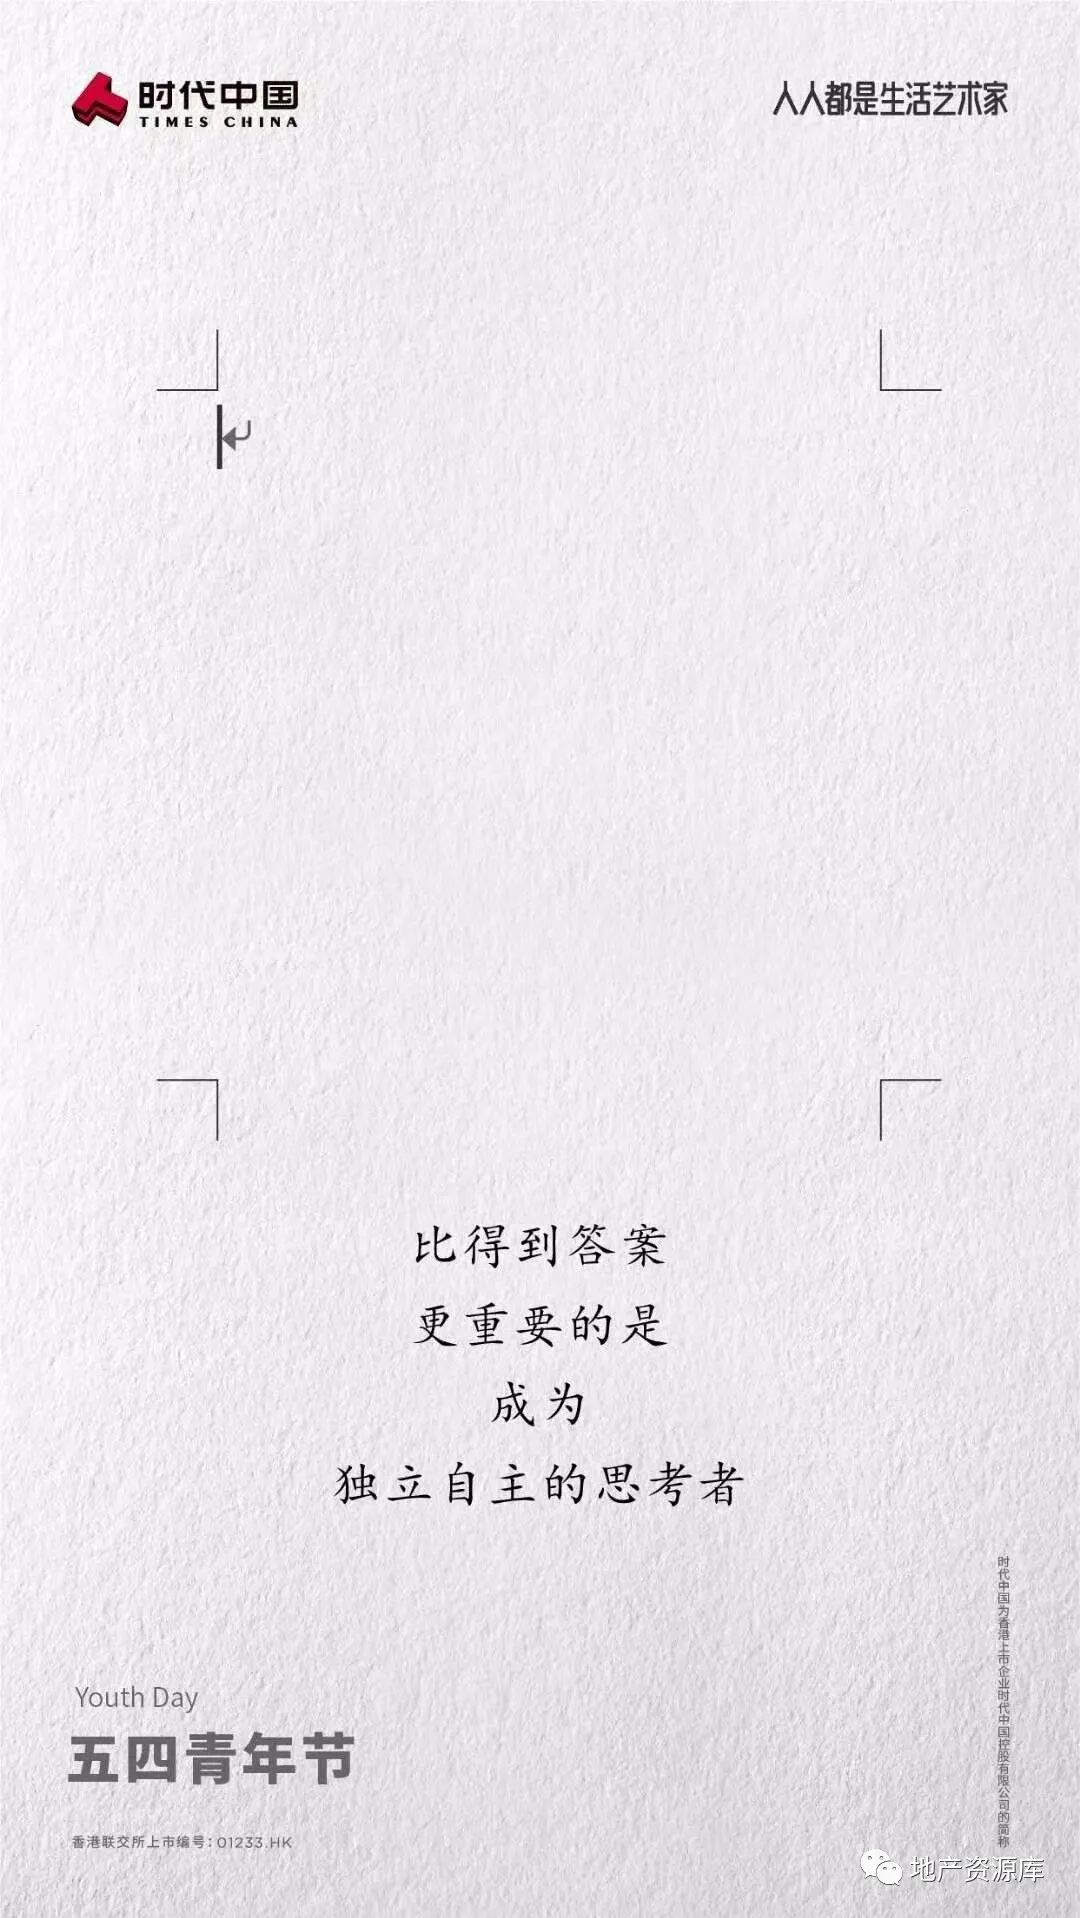 时代中国
TIMES CHINA
人人都是生活艺术家
比得到答案
更重要的是
成为
独立自主的思考者
时代中国为香港上市企业时代中国控股有限公司的简称
Youth Day
五四青年节
香港联交所上市编号：01233.HK
地产资源库